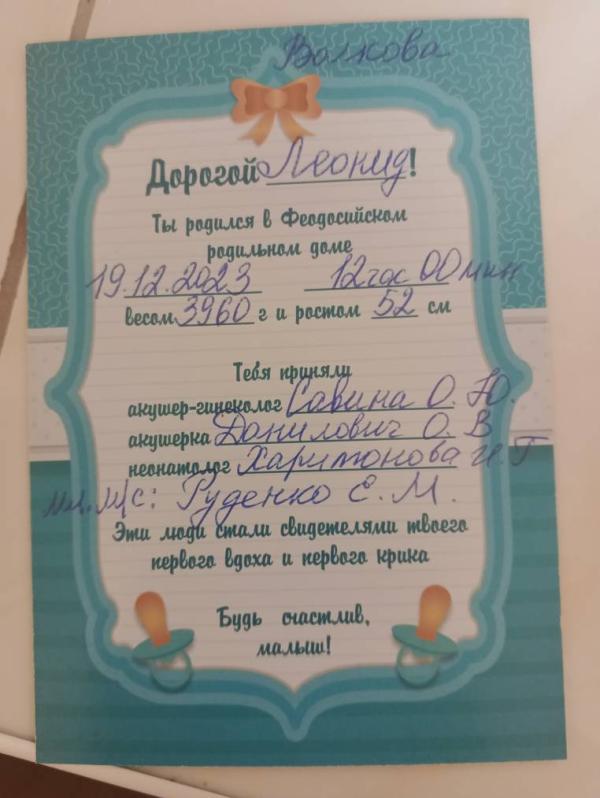 Волкова
Дорогой Леонид!
Ты родился в Феодосийском
родильном доме
19.12.2023 12 час 00 мин
весом 3960 г и ростом 52 см
Тебя приняли
акушер-гинеколог Савина О. Ю.
акушерка Данилович О. В
неонатолог Харитонова И. Г
мл. м/с: Руденко Е. М.
Эти люди стали свидетелями твоего
первого вдоха и первого крика
Будь счастлив,
малыш!